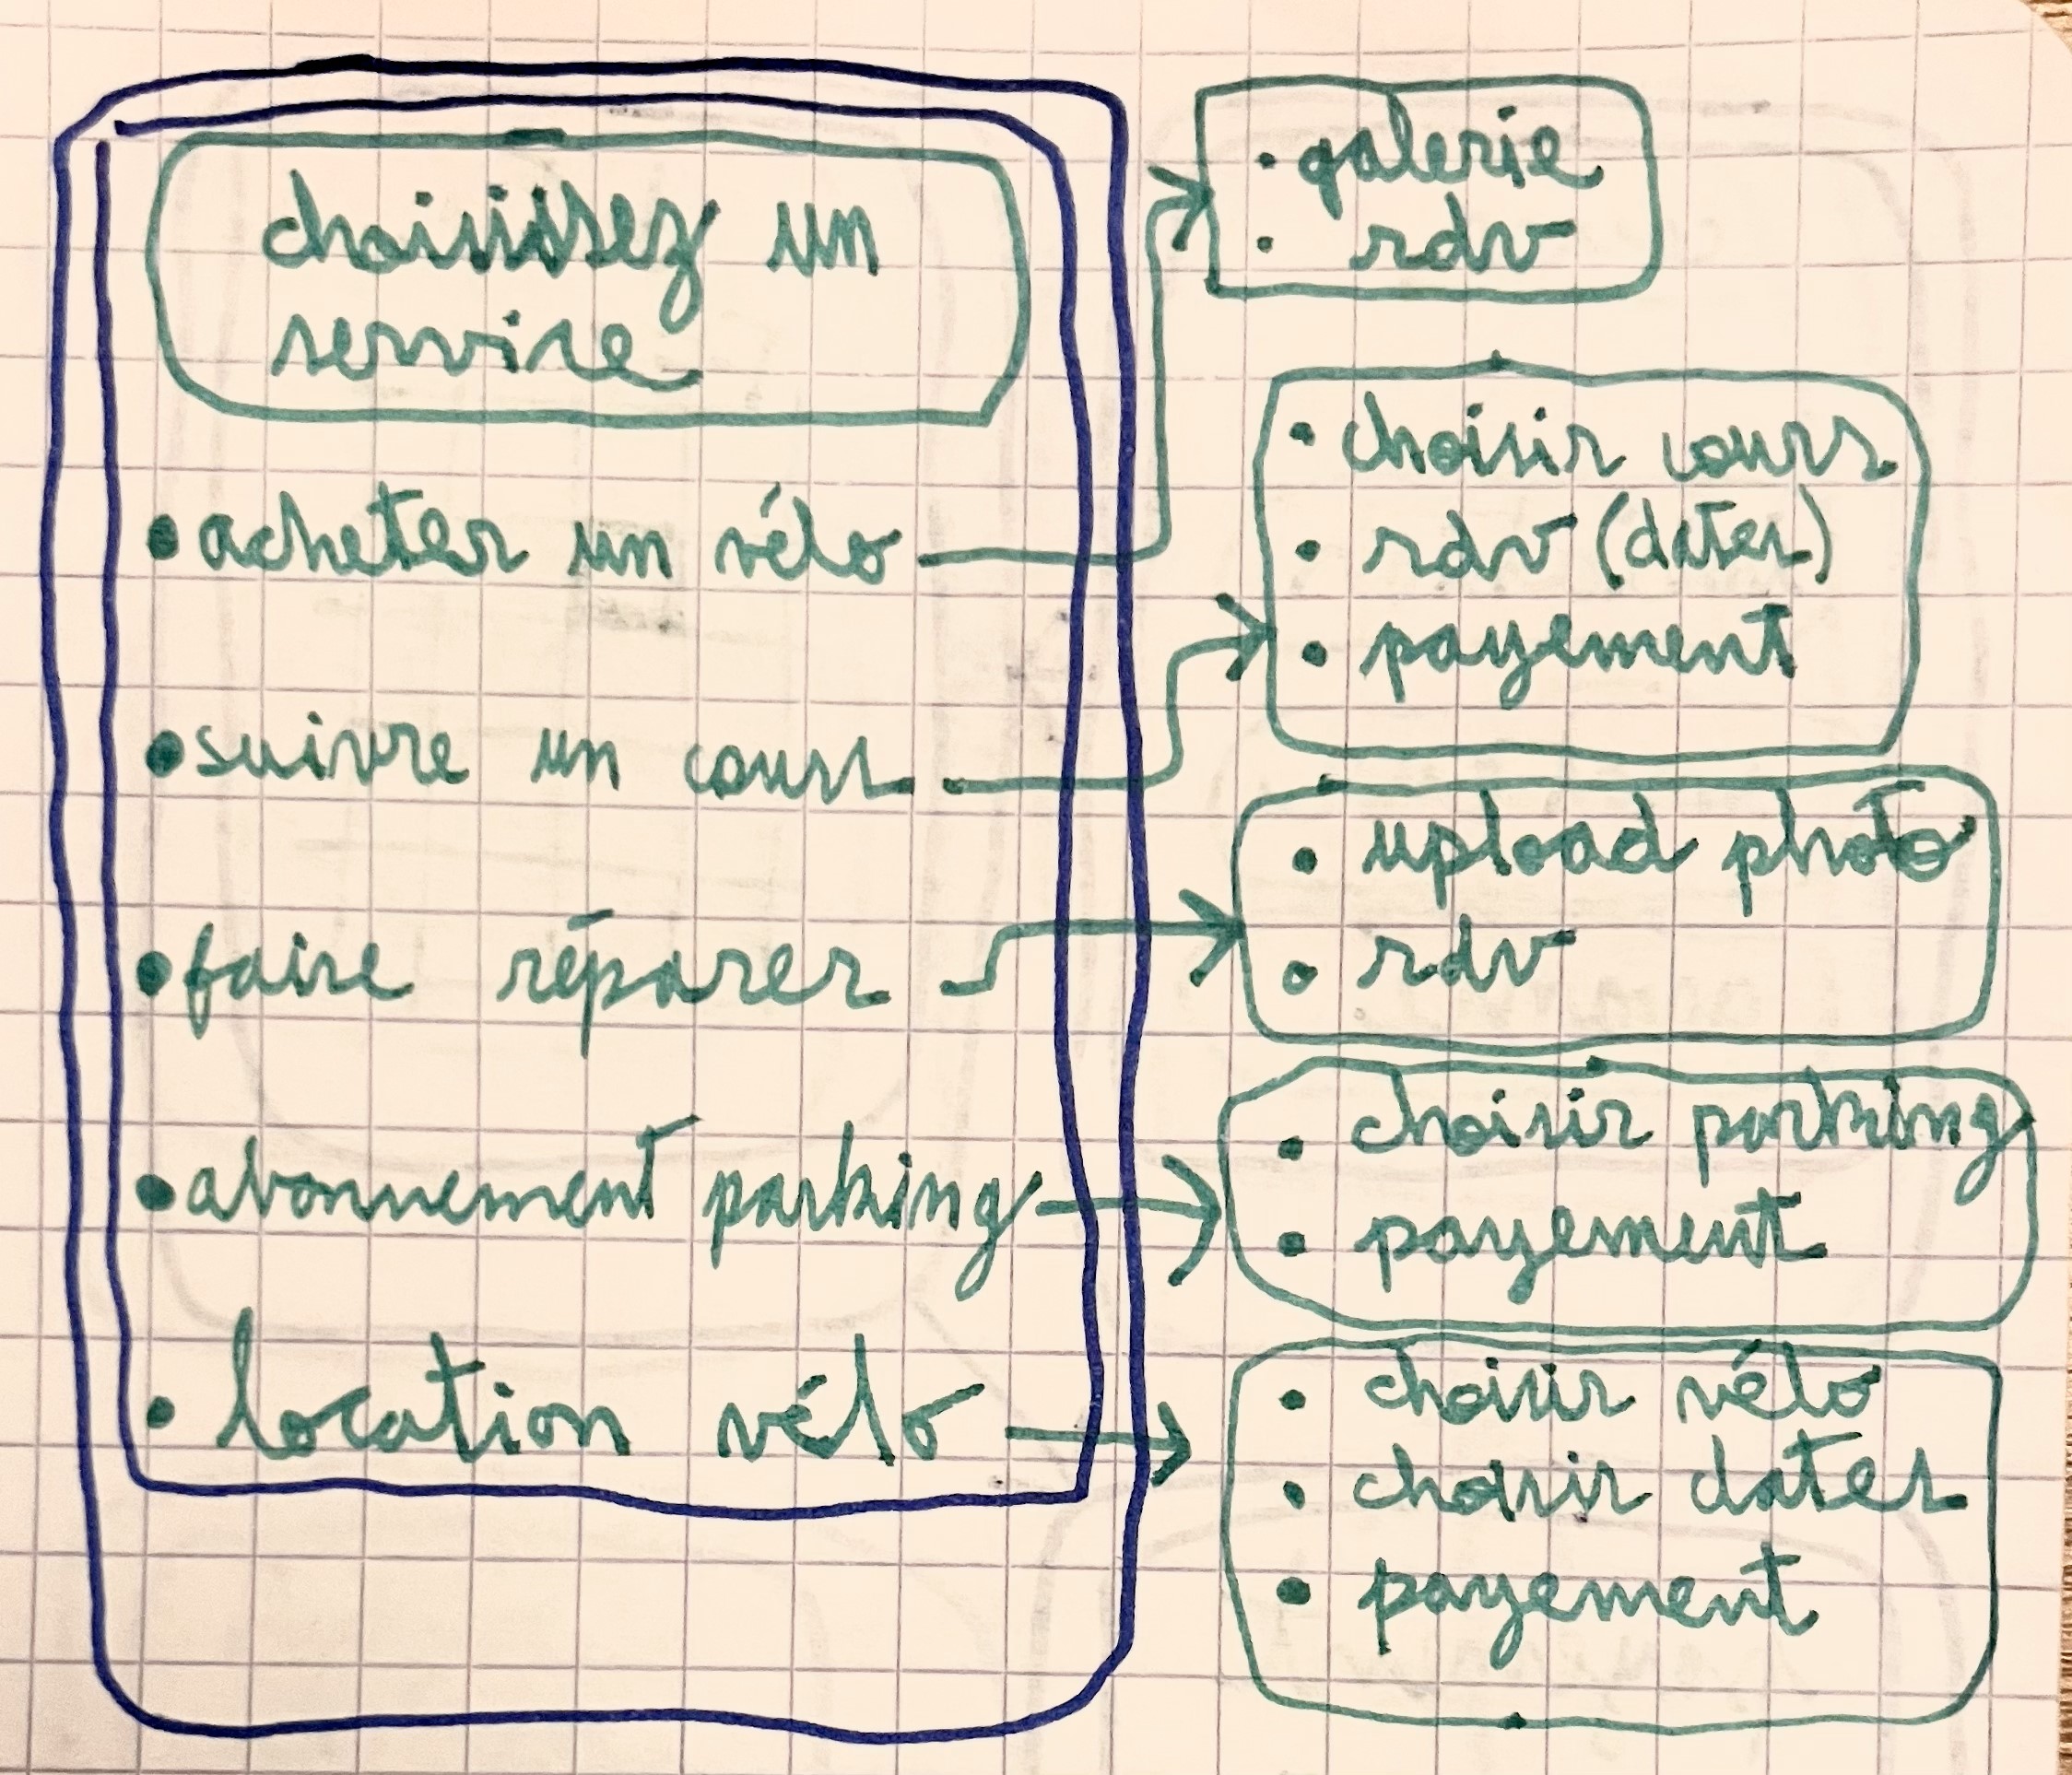 choisissez un
service
• acheter un vélo
• suivre un cours
• faire réparer
• abonnement parking
• location vélo
• galerie
• rdv
• choisir cours
• rdv (dates)
• payement
• upload photo
• rdv
• choisir parking
• payement
• choisir vélo
• choisir dates
• payement